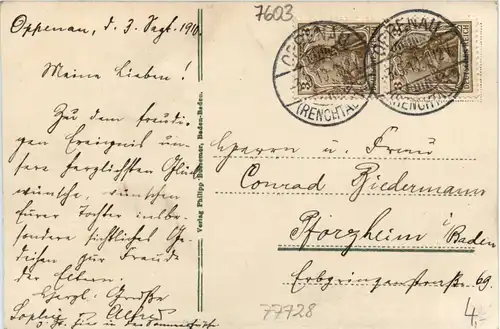 Oppenau, d. 3 Sept. 1910
Meine Lieben!
Zu dem freudi-
gen Ereignis un-
sere herzlichsten Glück
wünsche, wünschen
Eurer Tochter insbe-
sondere sichtliches Ge-
deihen zur Freude
der Eltern.
Herzl. Grüße
Sophie u. Alfred
7603
OPPENAU
(RENCHTAL)
OPPENAU
(RENCHTAL)
Verlag Philipp Baden-Baden.
Herrn u. Frau
Conrad Biedermann
Pforzheim i
Baden
Erbprinzenstraße 69.
77728
4,-